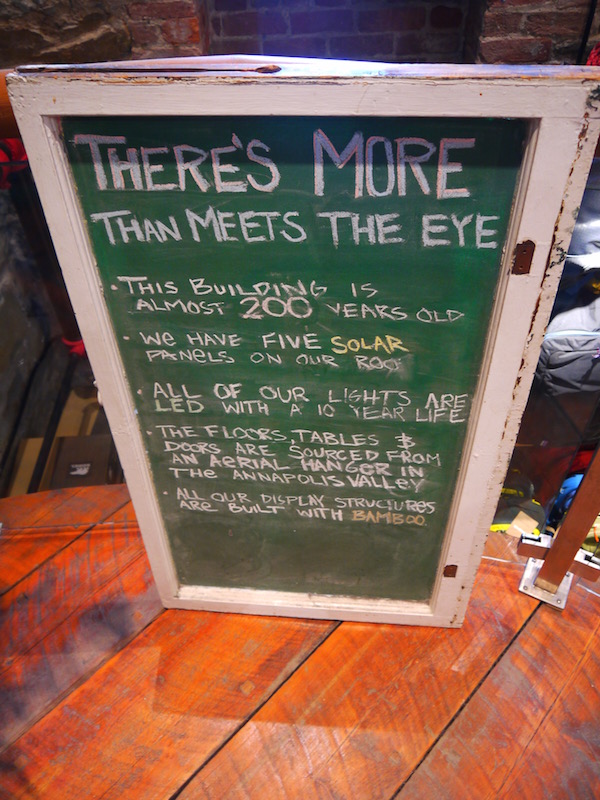 THERE'S MORE
THAN MEETS THE EYE
• THIS BUILDING IS
ALMOST 200 YEARS OLD
• WE HAVE FIVE SOLAR
PANELS ON OUR ROO
• ALL OF OUR LIGHTS ARE
LED WITH A 10 YEAR LIFE
• THE FLOORS, TABLES &
DOORS ARE SOURCED FROM
AN AERIAL HANGER IN
THE ANNAPOLIS VALLEY
• ALL OUR DISPLAY STRUCTURES
ARE BUILT WITH BAMBOO